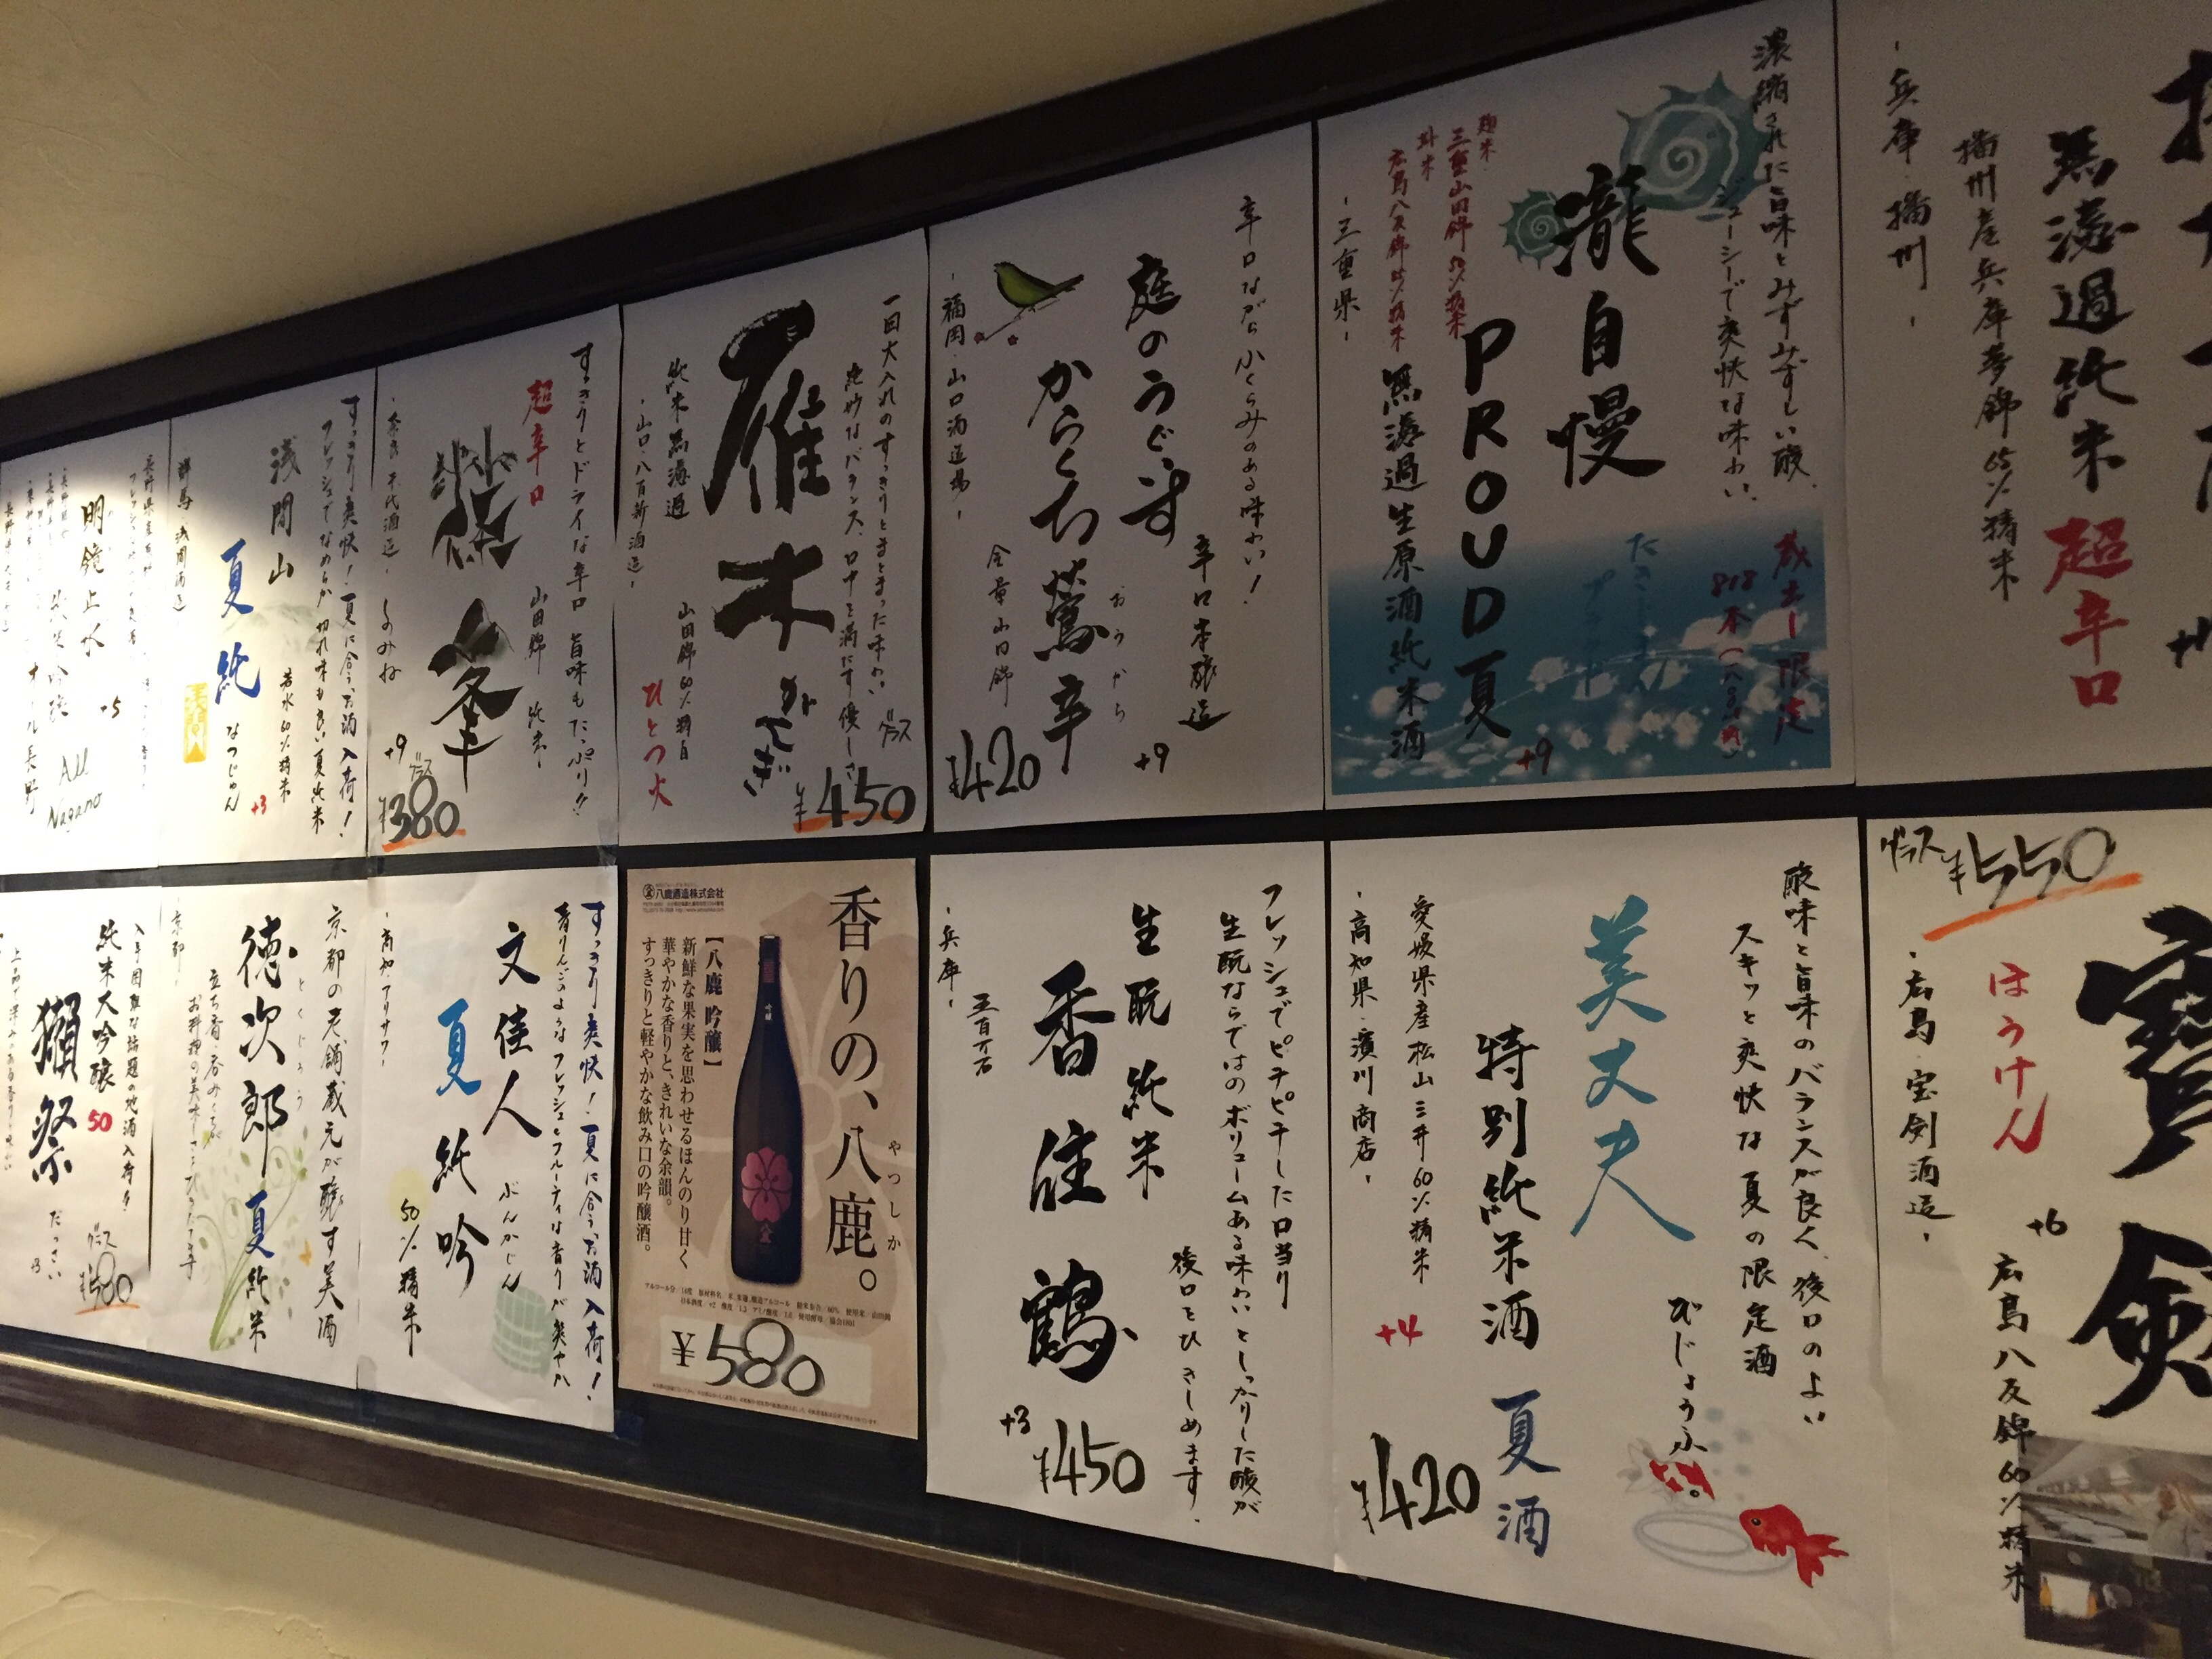 無濾過純米 超辛口
播州産兵庫夢錦65%精米
-兵庫・播州-
濃縮された旨味とみずみずしい酸、
ジューシーで爽快な味わい、
蔵出し限定
瀧自慢
たきじまん
プラウド
PROUD夏
+9
無濾過生原酒純米酒
麹米
三重山田錦50%精米
掛米
-三重県-
辛口ながらふくらみのある味わい!
辛口本醸造
庭のうぐいす
からくち鶯辛
おうから
+9
全量山田錦
-福岡・山口酒造場-
¥420
一回火入れのすっきりとまとまった味わい
絶妙なバランス、口中を満たす優しさ
グラス
¥450
雁木
がんぎ
純米無濾過
山田錦60%精白
ひとつ火
-山口・八百新酒造-
すっきりとドライな辛口 旨味もたっぷり!!
超辛口
山田錦 純米
篠峯
しのみね
+9
グラス
¥380
-奈良・千代酒造-
すっきり爽快!夏に合うお酒入荷!
フレッシュでなめらか 切れ味も良い夏純米
若水60%精米
+3
浅間山
夏純
なつじゅん
群馬(浅間酒造)
明鏡止水
+5
All
Nagano
グラス ¥550
寶剣
ほうけん
+6
広島八反錦60%精米
-広島・宝剣酒造-
酸味と旨味のバランスが良く、後口のよい
スキッと爽快な夏の限定酒
美丈夫
びじょうふ
特別純米酒 夏酒
愛媛県産松山三井60%精米
+4
-高知県・濱川商店-
¥420
フレッシュでピチピチした口当り
生酛ならではのボリュームある味わいとしっかりした酸が
後口をひきしめます。
生酛 純米
香住鶴
+3
五百万石
-兵庫-
¥450
八鹿酒造株式会社
香りの、八鹿。
やつしか
【八鹿 吟醸】
新鮮な果実を思わせるほんのり甘く
華やかな香りと、きれいな余韻。
すっきりと軽やかな飲み口の吟醸酒。
¥580
すっきり爽快!夏に合うお酒入荷!
青りんごのようなフレッシュ&フルーティな香りが爽やか
文佳人
ぶんかじん
夏純吟
50%精米
-高知・アリサワ-
京都の老舗蔵元が醸す美酒
徳次郎 夏純米
とくじろう
京都
入手困難な話題の地酒入荷!!
純米大吟醸50
獺祭
だっさい
+3
グラス
¥580